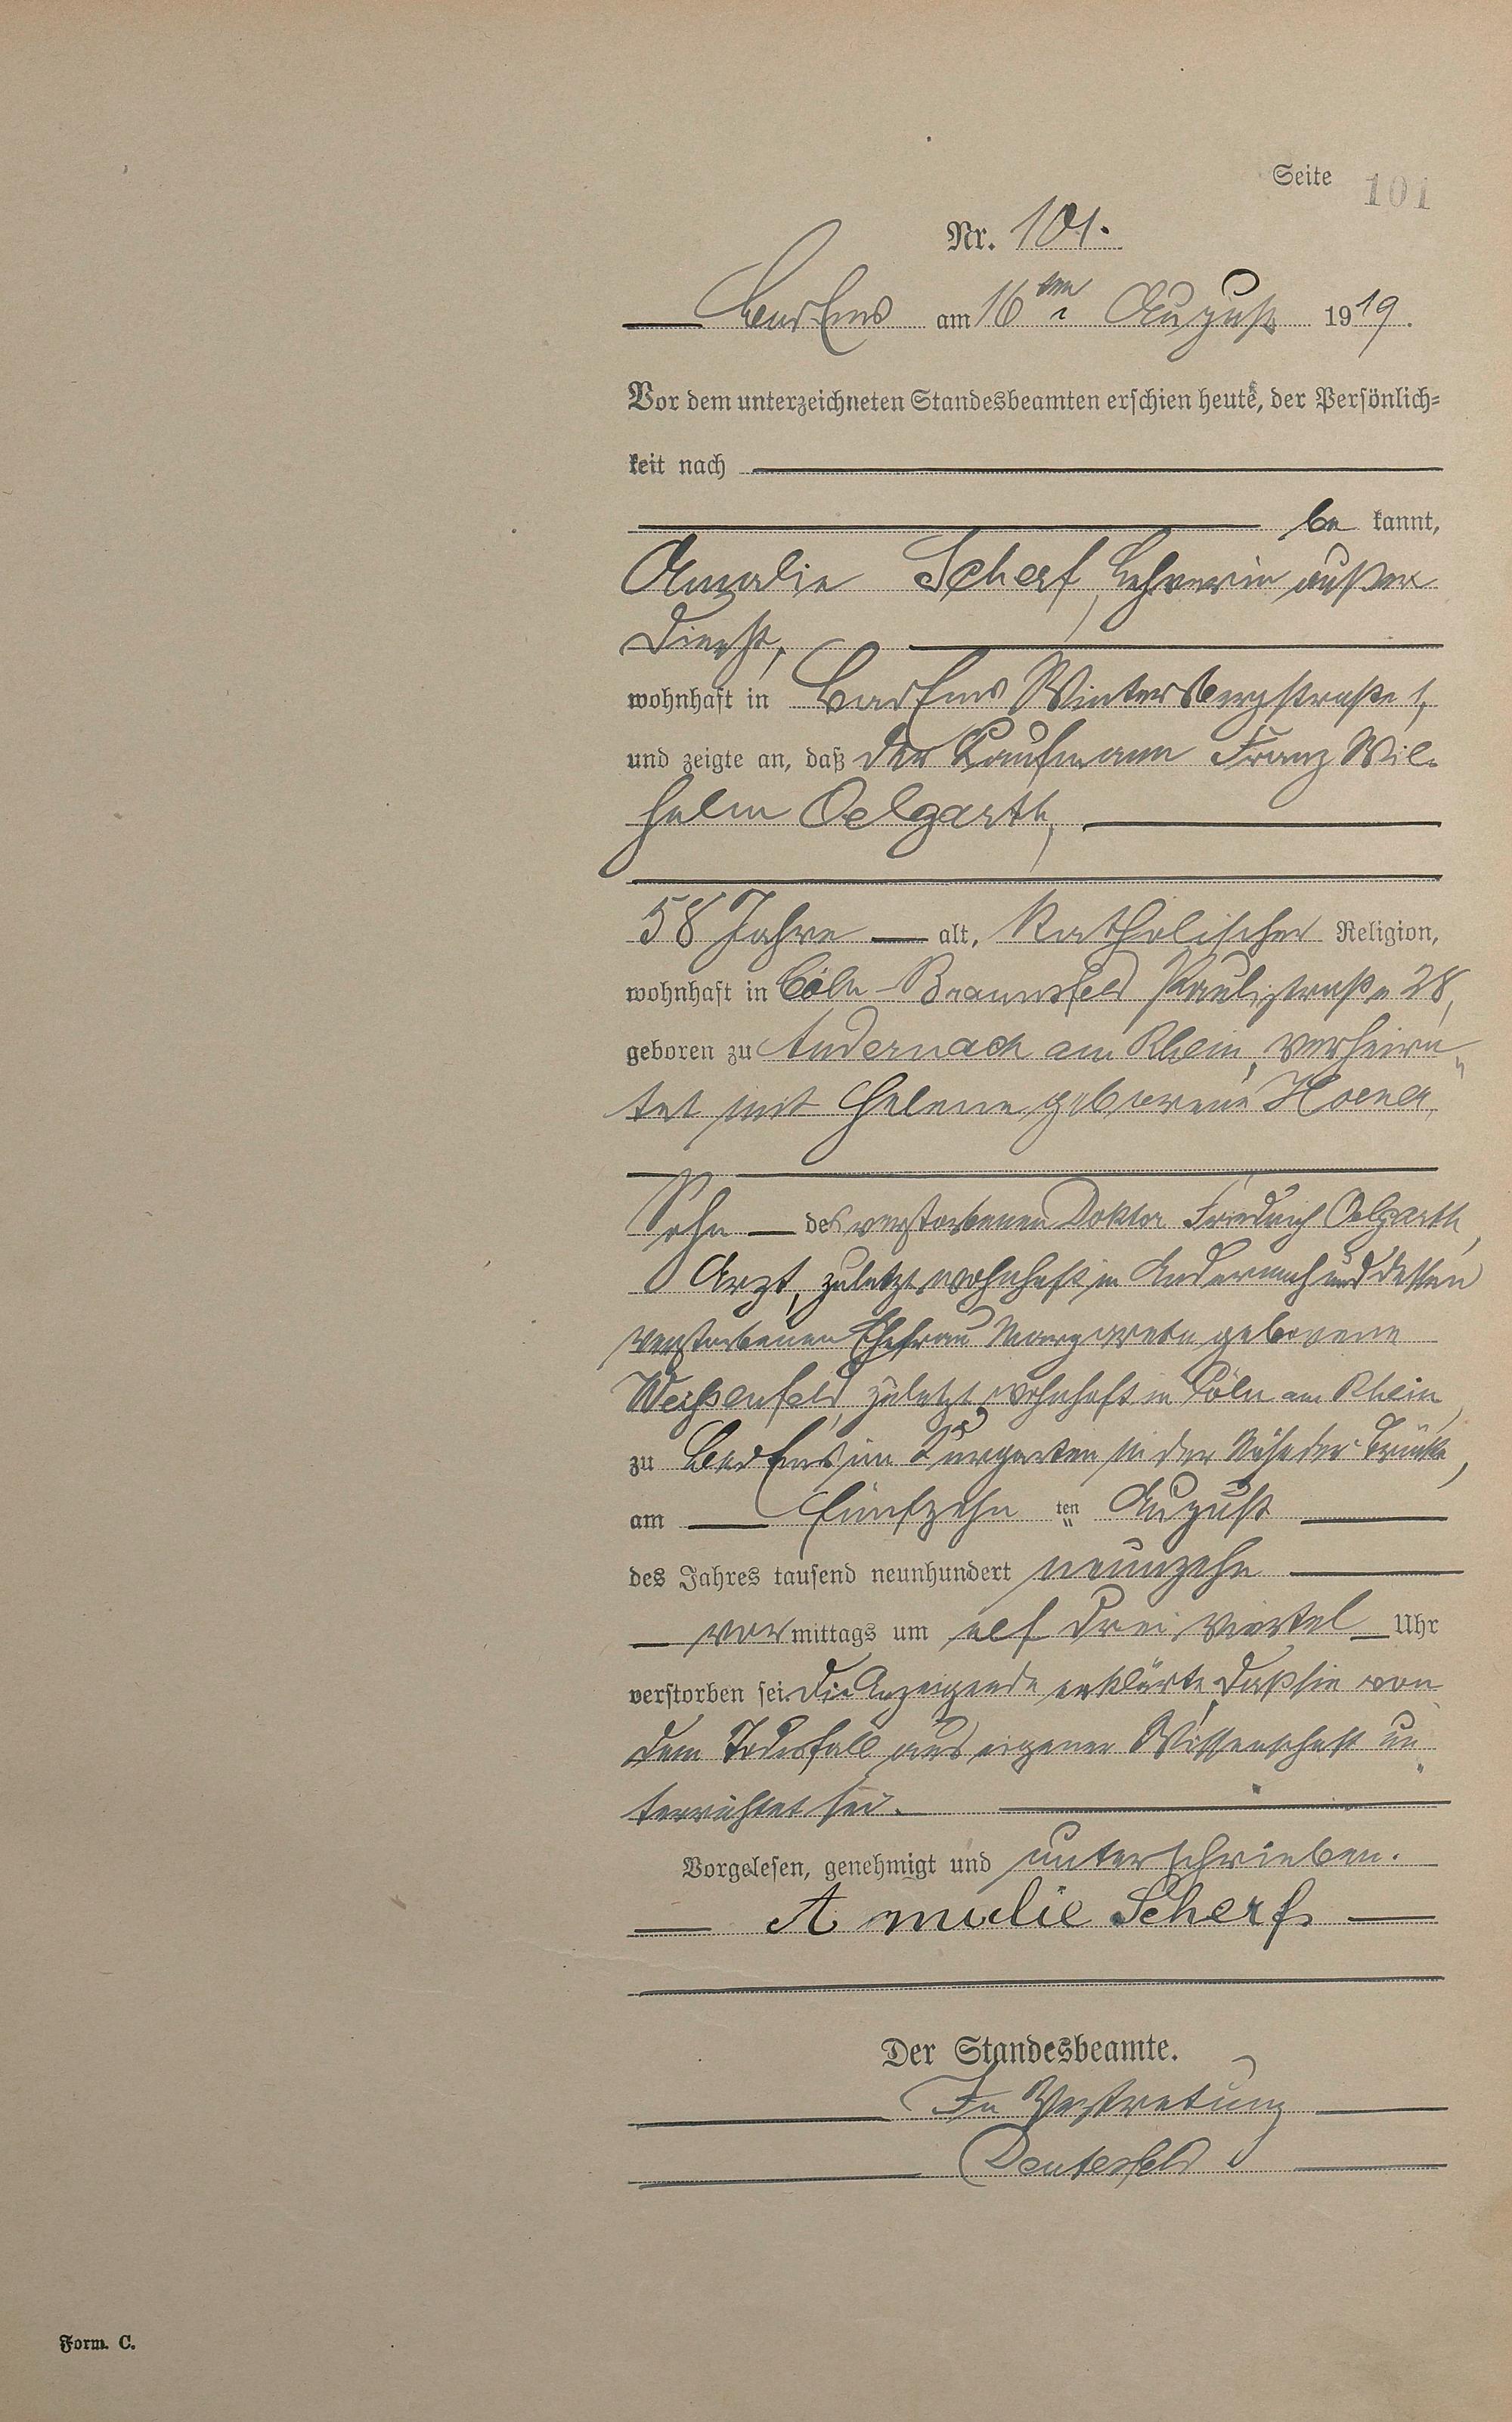 Seite 101
Nr. 101.
Bad Ems am 16ten August 1919.
Vor dem unterzeichneten Standesbeamten erschien heute, der Persönlich-
keit nach
be kannt,
Amalie Scherf, Lehrerin außer
Dienst,
wohnhaft in Bad Ems Wintersbergstraße 1,
und zeigte an, daß der Kaufmann Franz Wil-
helm Oelgarth,
58 Jahre alt, Katholischer Religion,
wohnhaft in Cöln-Braunsfeld Paulistraße 28,
geboren zu Andernach am Rhein, verheira-
tet mit Helene geborene
Sohn des verstorbenen Doktor Friedrich Oelgarth,
Arzt, zuletzt wohnhaft in Andernach und dessen
verstorbenen Ehefrau Margareta geborene
Weißenfeld, zuletzt wohnhaft in Cöln am Rhein,
zu Bad Ems im Kurgarten in der Nähe der Brücke,
am fünfzehn ten August
des Jahres tausend neunhundert neunzehn
vor mittags um elf drei viertel Uhr
verstorben sei. Die Anzeigende erklärte, daß sie von
dem Todesfall aus eigener Wissenschaft un-
terrichtet sei.
Vorgelesen, genehmigt und unterschrieben.
Amalie Scherf
Der Standesbeamte.
In Vertretung
Form. C.